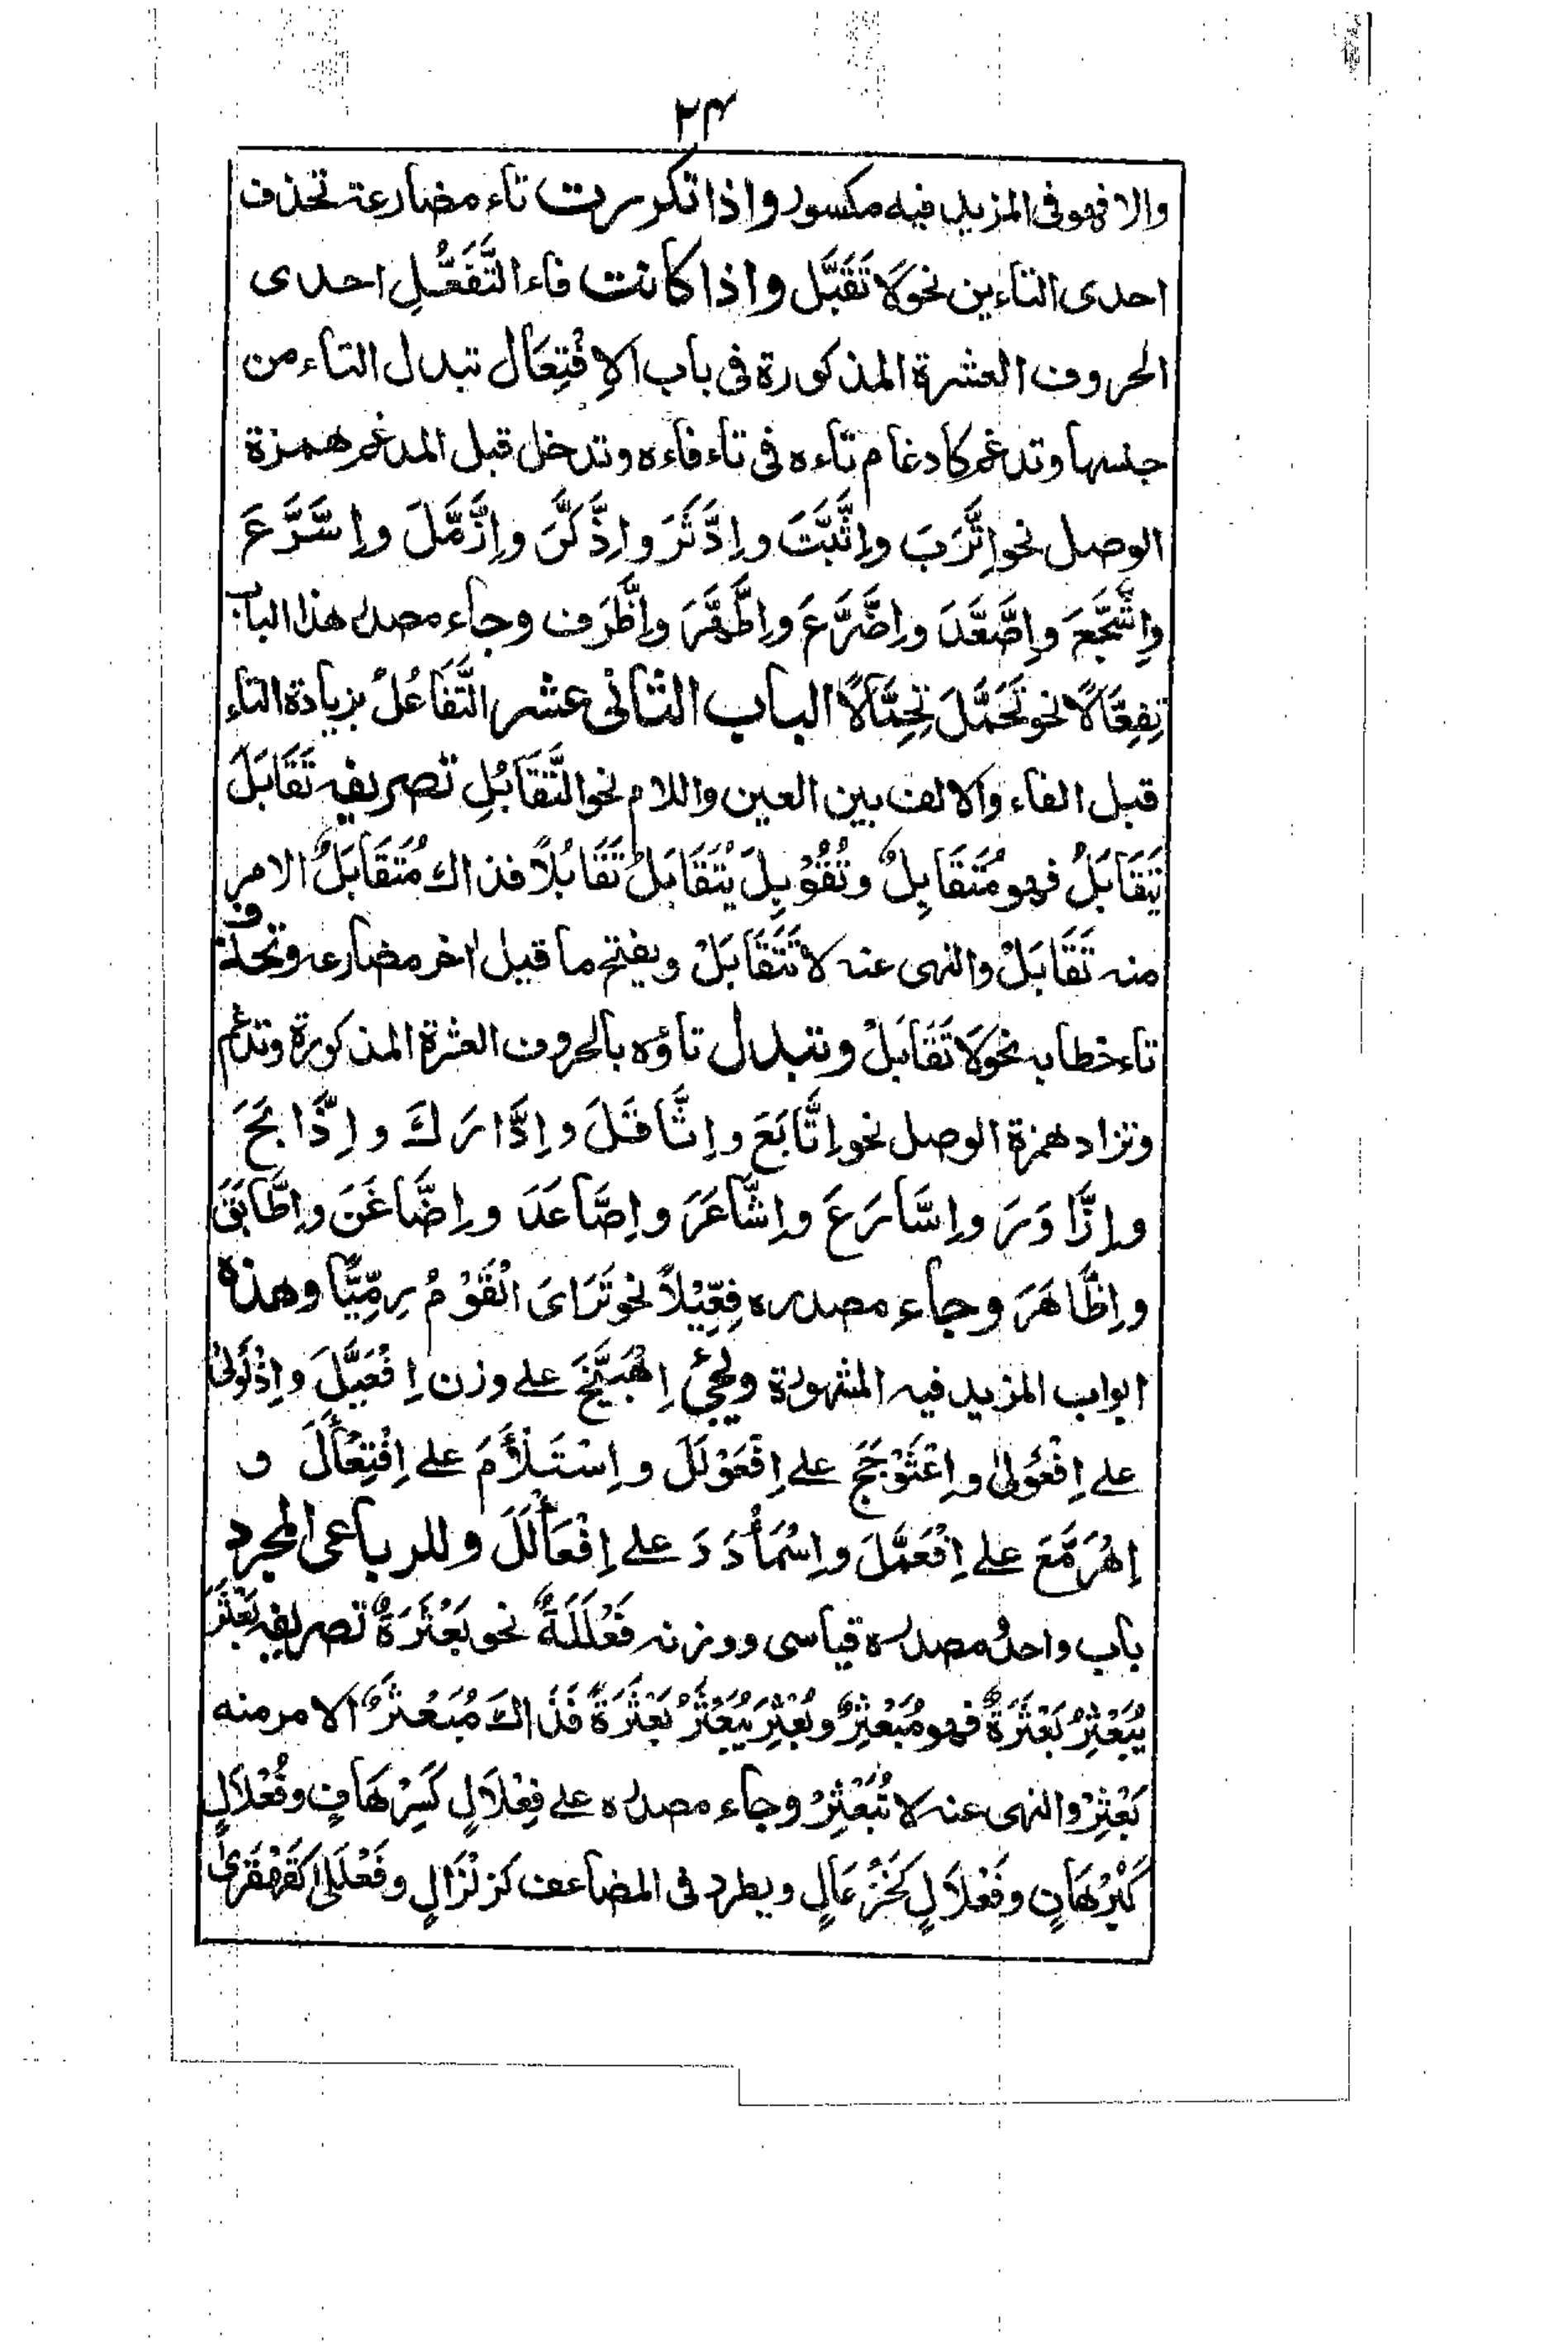 ٢٤
والا فهو فى المزيد فيه مكسور واذا تكررت تاء مضارعة تحذف
احدى التاءين نحو لَا تَقَبَّل واذا كانت فاء التَّفَعُّلِ احدى
الحروف العشرة المذكورة فى باب الاِفْتِعَال تبدل التاء من
جنسها وتدغم كادغام تاءه فى تاء فاءه وتدخل قبل المدغم همزة
الوصل نحو اِتَّرَبَ واِثَّبَّتَ واِدَّثَّرَ واِذَّكَّرَ واِزَّمَّلَ واِسَّرَّعَ
واِشَّجَّعَ واِصَّعَّدَ واِضَّرَّعَ واِطَّهَّرَ واِظَّرَف وجاء مصدر هذا الباب
تِفِعَّالًا نحو تَحَمَّلَ تِحِمَّالًا الباب الثانى عشر التَّفَاعُلُ بزيادة التاء
قبل الفاء والالف بين العين واللام نحو التَّقَابُلِ تصريفه تَقَابَلَ
يَتَقَابَلُ فهو مُتَقَابِلٌ وتُقُوْبِلَ يُتَقَابَلُ تَقَابُلًا فذاك مُتَقَابَلٌ الامر
منه تَقَابَلْ والنهى عنه لا تَتَقَابَلْ ويفتح ما قبل اخر مضارعه وتحذف
تاء خطابه نحو لَا تَقَابَلْ وتبدل تاؤه بالحروف العشرة المذكورة وتدغم
وتزاد همزة الوصل نحو اِتَّابَعَ واِثَّاقَلَ واِدَّارَكَ واِذَّابَحَ
واِزَّاوَرَ واِسَّارَعَ واِشَّاعَرَ واِصَّاعَدَ واِضَّاغَنَ واِطَّابَقَ
واِظَّاهَرَ وجاء مصدره فِعِّيْلًا نحو تَرَاىَ الْقَوْمُ رِمِّيًّا وهذه
ابواب المزيد فيه المشهورة ويجئ اِهْبَيَّخَ على وزن اِفْعَيَّلَ واِذْلَوْلىٰ
على اِفْعَوْلىٰ واِعْثَوْجَجَ على اِفْعَوْلَلَ واِسْتَلْأَمَ على اِفْتِعْأَلَ و
اِهْرَمَّعَ على اِفْعَمَّلَ واِسْمَأْدَدَ على اِفْعَأْلَلَ وللرباعى المجرد
باب واحد مصدره قياسى ووزنه فَعْلَلَةٌ نحو بَعْثَرَةٌ تصريفه بَعْثَرَ
يُبَعْثِرُ بَعْثَرَةً فهو مُبَعْثِرٌ وبُعْثِرَ يُبَعْثَرُ بَعْثَرَةً فَذَاكَ مُبَعْثَرٌ الامر منه
بَعْثِرْ والنهى عنه لا تُبَعْثِرْ وجاء مصدره على فِعْلَالٍ كَسِرْهَافٍ وفُعْلَالٍ
كَبُرْهَانٍ وفَعْلَالٍ كَخَزْعَالٍ ويطرد فى المضاعف كزلْزَالٍ وفَعْلَلىٰ كَقَهْقَرىٰ